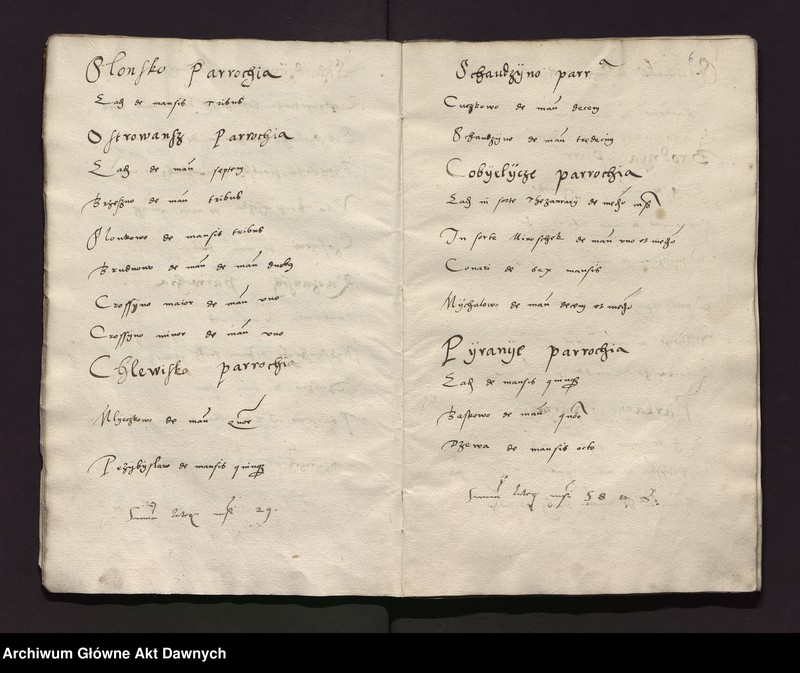 Slonsko Parrochia
Eadem de mansis tribus
Ostrowansz Parrochia
Eadem de man septem
Brzeszno de man tribus
Slonkowo de mansis tribus
Brudnowo de man de man duobus
Crossyno maior de man uno
Crossyno minor de man uno
Chlewisko parrochia
Mlyczkowo de man
Przybyslaw de mansis quinque
29.
6
Schaudzyno parra
Cuczkowo de man decem
Schaudzyno de man tredecim
Cobyelycze parrochia
Eadem in sorte de medio
In sorte Miroschek de man uno et medio
Conari de sex mansis
Mychalowo de man decem et medio
Pyranye parrochia
Eadem de mansis quinque
Baskowo de man
Dzewa de mansis octo
58
Archiwum Główne Akt Dawnych